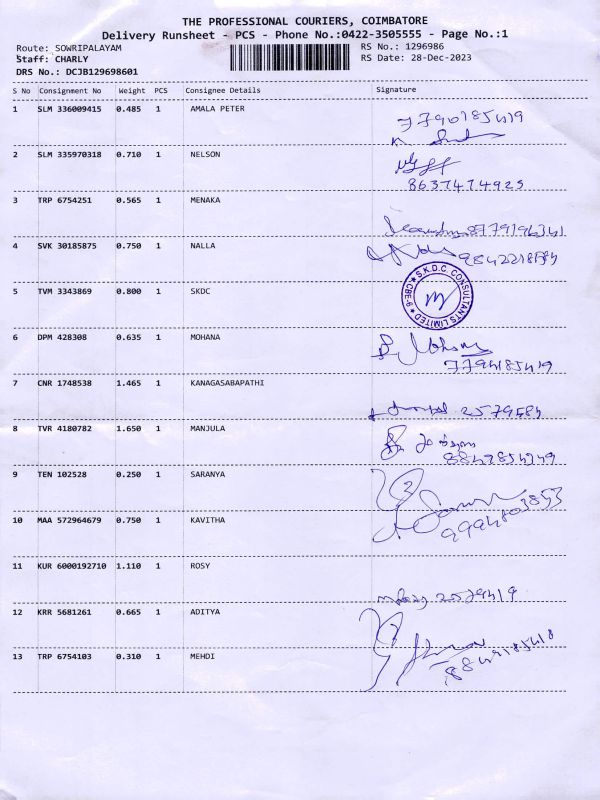 THE PROFESSIONAL COURIERS, COIMBATORE
Delivery Runsheet - PCS - Phone No.:0422-3505555 - Page No.:1
Route: SOWRIPALAYAM
RS No.: 1296986
Staff: CHARLY
RS Date: 28-Dec-2023
DRS No.: DCJB129698601
S No Consignment No Weight PCS Consignee Details Signature
1 SLM 336009415 0.485 1 AMALA PETER
2 SLM 335970318 0.710 1 NELSON
8637474925
3 TRP 6754251 0.565 1 MENAKA
4 SVK 30185875 0.750 1 NALLA
5 TVM 3343869 0.800 1 SKDC
S.K.D.C. CONSULTANTS LIMITED CBE-6
6 DPM 428308 0.635 1 MOHANA
Mohana
7794185419
7 CNR 1748538 1.465 1 KANAGASABAPATHI
8 TVR 4180782 1.650 1 MANJULA
9 TEN 102528 0.250 1 SARANYA
10 MAA 572964679 0.750 1 KAVITHA
11 KUR 6000192710 1.110 1 ROSY
12 KRR 5681261 0.665 1 ADITYA
13 TRP 6754103 0.310 1 MEHDI